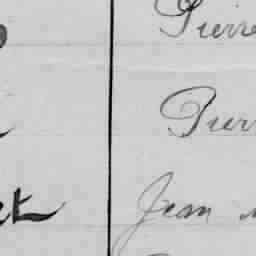 Pierre
Pierr
et Jean